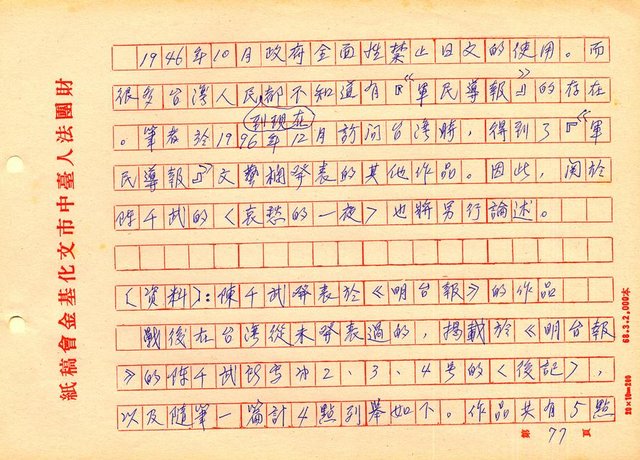 1946年10月政府全面性禁止日文的使用。而
很多台湾人民都不知道有『《軍民導報》』的存在
到現在
。筆者於1996年12月訪问台湾時，得到了『《軍
民導報》』文藝欄発表的其他作品。因此，関於
陳千武的〈哀愁的一夜〉也將另行論述。
〔資料〕：陳千武発表於《明台報》的作品
戰後在台湾從未発表過的，揭載於《明台報
》的陳千武
2、3、4号的〈後記〉，
以及隨筆一篇計4點列舉如下。作品共有5點
第 77 頁
財團法人臺中市文化基金會稿紙
68.3.2,000本
20×10=200